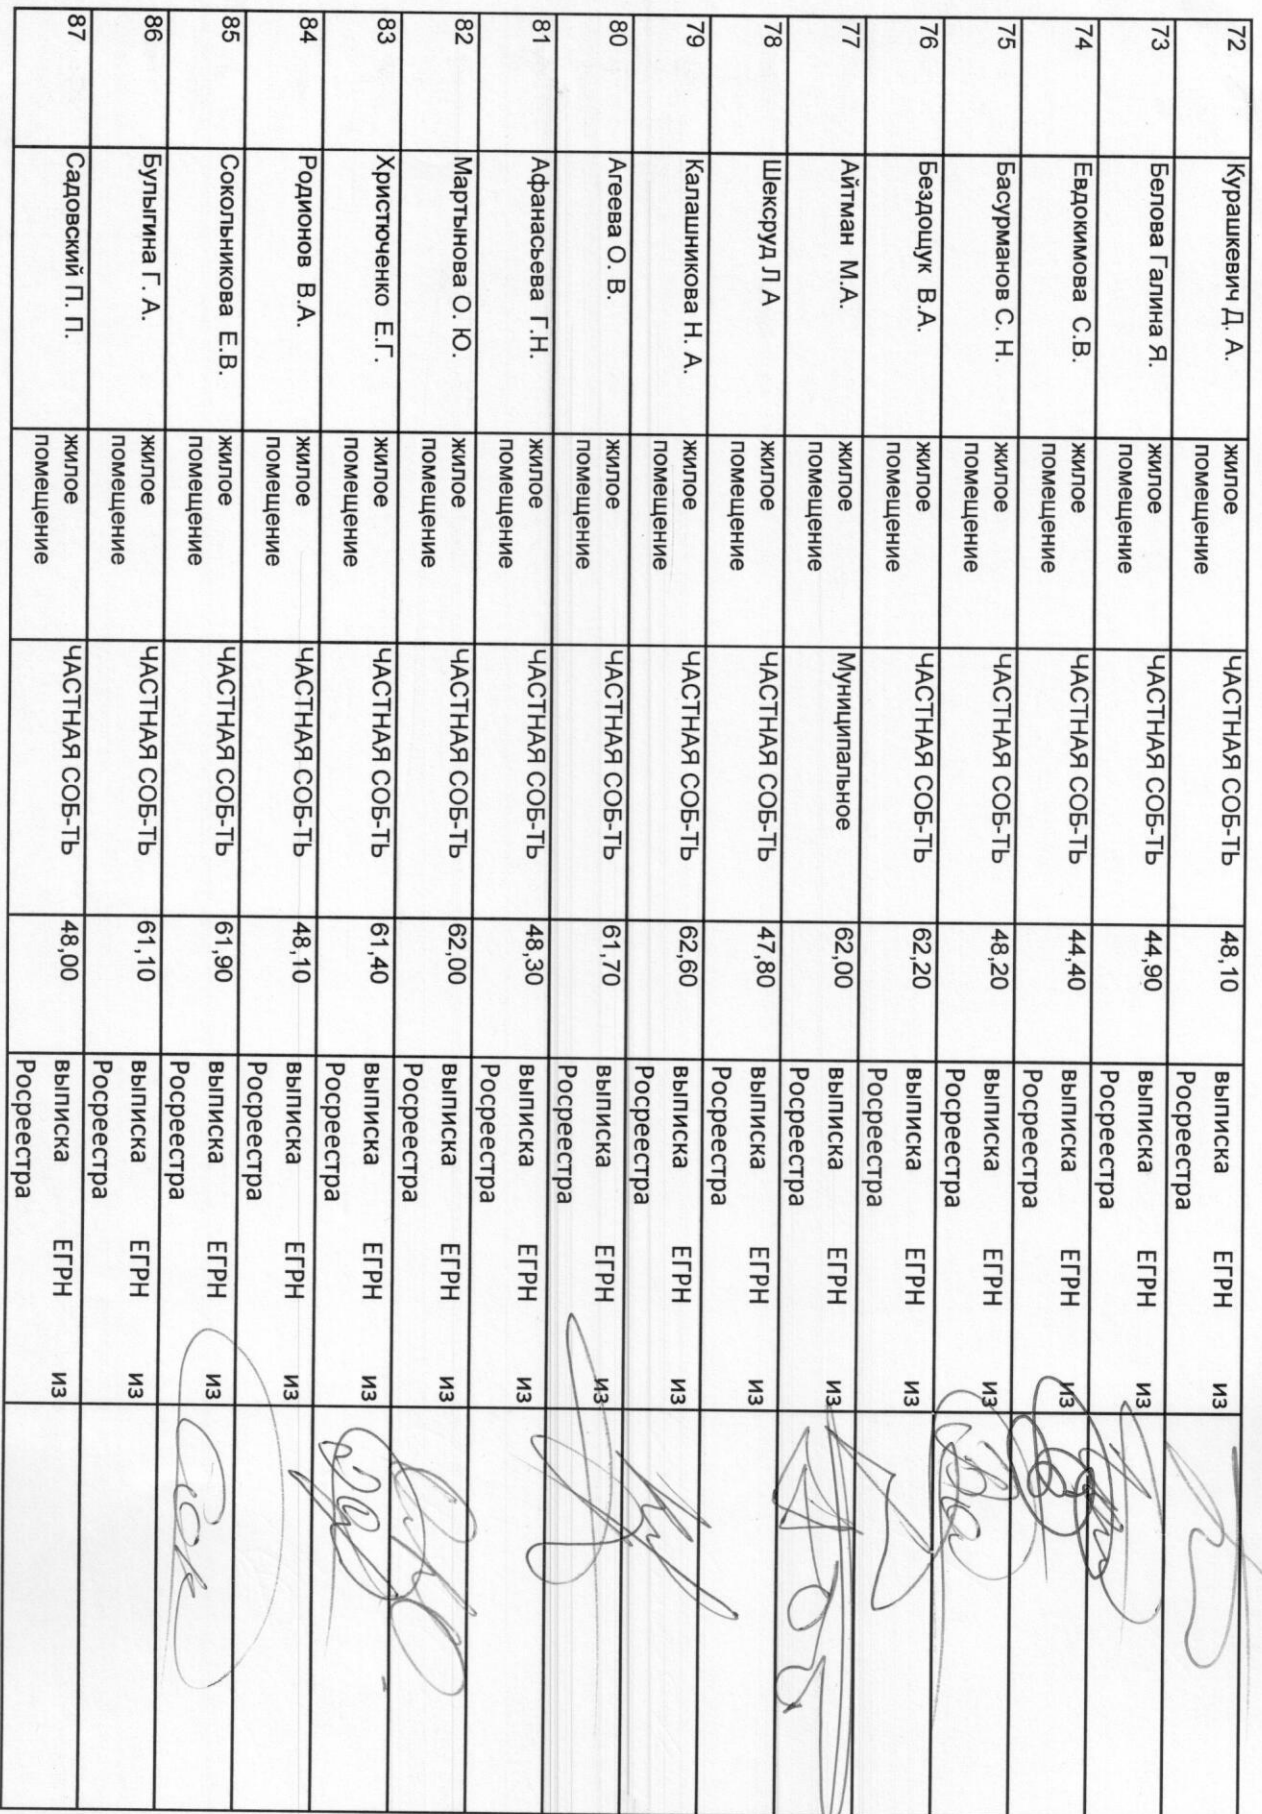 72 Курашкевич Д. А. жилое помещение ЧАСТНАЯ СОБ-ТЬ 48,10 выписка ЕГРН из Росреестра
73 Белова Галина Я. жилое помещение ЧАСТНАЯ СОБ-ТЬ 44,90 выписка ЕГРН из Росреестра
74 Евдокимова С.В. жилое помещение ЧАСТНАЯ СОБ-ТЬ 44,40 выписка ЕГРН из Росреестра
75 Басурманов С. Н. жилое помещение ЧАСТНАЯ СОБ-ТЬ 48,20 выписка ЕГРН из Росреестра
76 Бездощук В.А. жилое помещение ЧАСТНАЯ СОБ-ТЬ 62,20 выписка ЕГРН из Росреестра
77 Айтман М.А. жилое помещение Муниципальное 62,00 выписка ЕГРН из Росреестра
78 Шексруд Л А жилое помещение ЧАСТНАЯ СОБ-ТЬ 47,80 выписка ЕГРН из Росреестра
79 Калашникова Н. А. жилое помещение ЧАСТНАЯ СОБ-ТЬ 62,60 выписка ЕГРН из Росреестра
80 Агеева О. В. жилое помещение ЧАСТНАЯ СОБ-ТЬ 61,70 выписка ЕГРН из Росреестра
81 Афанасьева Г.Н. жилое помещение ЧАСТНАЯ СОБ-ТЬ 48,30 выписка ЕГРН из Росреестра
82 Мартынова О. Ю. жилое помещение ЧАСТНАЯ СОБ-ТЬ 62,00 выписка ЕГРН из Росреестра
83 Христюченко Е.Г. жилое помещение ЧАСТНАЯ СОБ-ТЬ 61,40 выписка ЕГРН из Росреестра
84 Родионов В.А. жилое помещение ЧАСТНАЯ СОБ-ТЬ 48,10 выписка ЕГРН из Росреестра
85 Сокольникова Е.В. жилое помещение ЧАСТНАЯ СОБ-ТЬ 61,90 выписка ЕГРН из Росреестра
86 Булыгина Г. А. жилое помещение ЧАСТНАЯ СОБ-ТЬ 61,10 выписка ЕГРН из Росреестра
87 Садовский П. П. жилое помещение ЧАСТНАЯ СОБ-ТЬ 48,00 выписка ЕГРН из Росреестра